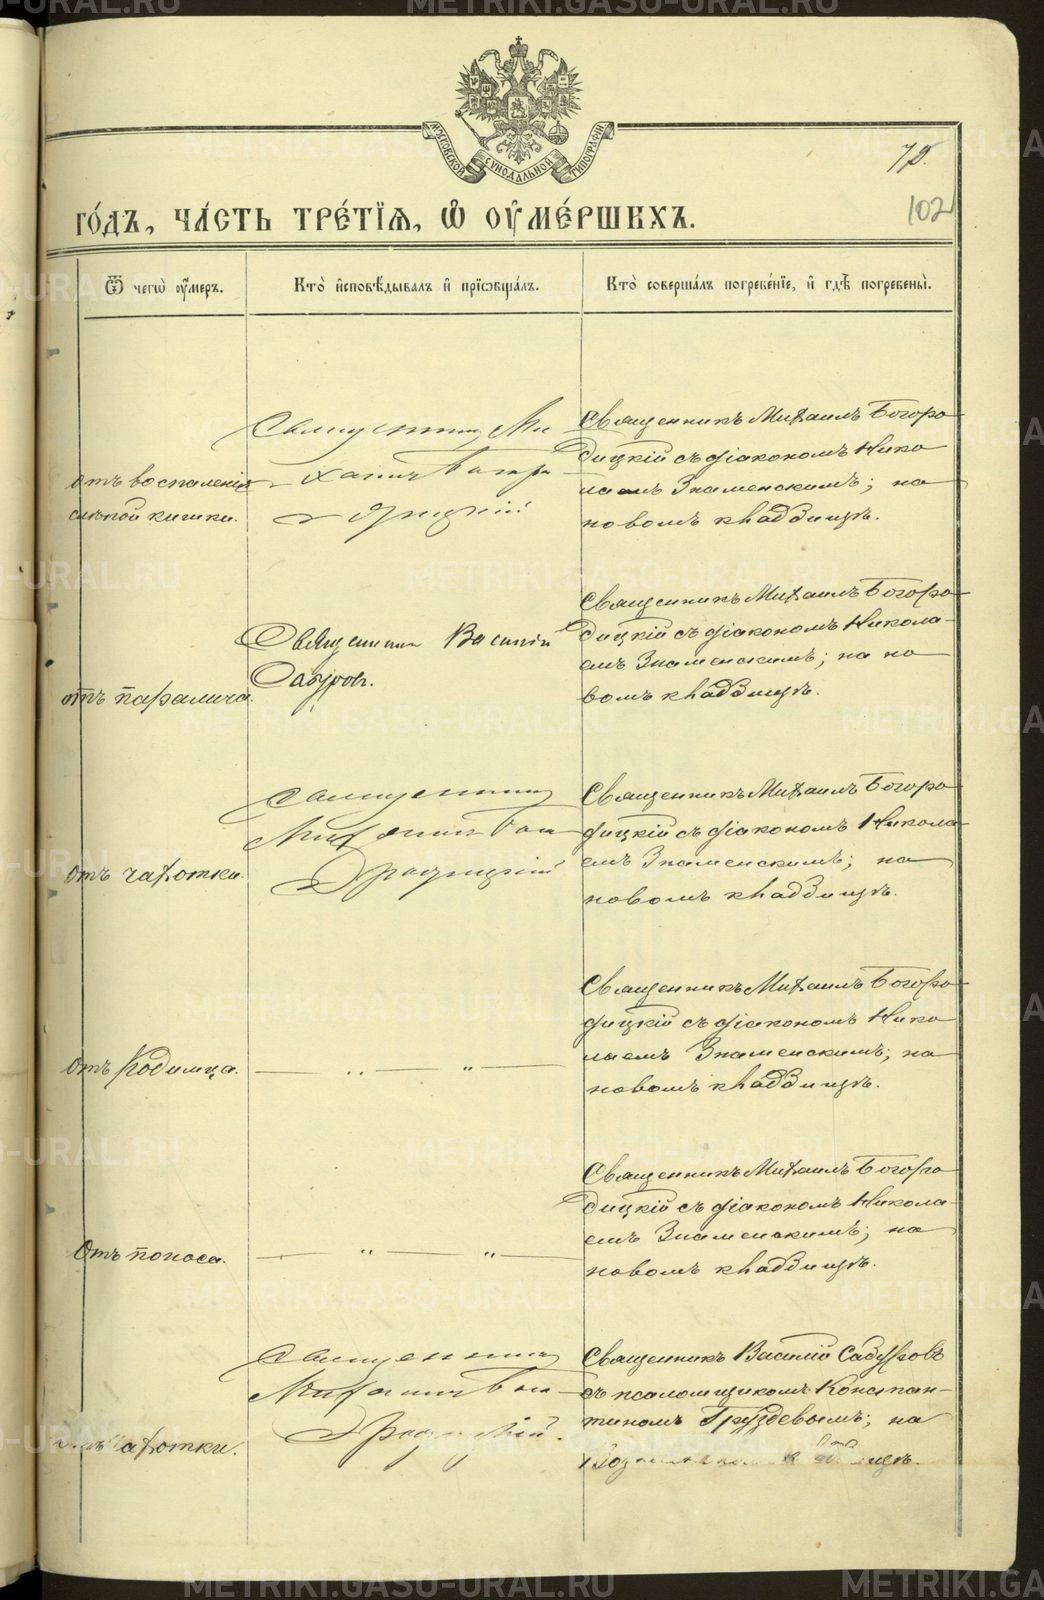 METRIKI.GASO-URAL.RU
МОСКОВСКОЙ СѴНОДАЛЬНОЙ ТИПОГРАФІИ
72.
102
ГО́ДЪ, ЧА́СТЬ ТРЕ́ТІѦ, Ѡ҆ ОУ҆МЕ́РШИХЪ.
Ѿ чегѡ̀ оу҆́меръ.
Кто̀ и҆сповѣ́дывалъ и҆ прїѡбща́лъ.
Кто̀ соверша́лъ погребе́нїе, и҆ гдѣ̀ погребены̀.
отъ воспаленія
слѣпой кишки.
Священникъ Ми
хаилъ Богоро
дицкій
Священникъ Михаилъ Богоро
дицкій съ діакономъ Нико
лаемъ Знаменскимъ; на
новомъ кладбищѣ.
отъ паралича.
Священникъ Василій
Сабуровъ.
Священникъ Михаилъ Богоро
дицкій съ діакономъ Никола
емъ Знаменскимъ; на но
вомъ кладбищѣ.
отъ чахотки
Священникъ
Михаилъ Бого
родицкій
Священникъ Михаилъ Богоро
дицкій съ діакономъ Никола
емъ Знаменскимъ; на
новомъ кладбищѣ.
отъ родимца.
— „ — „ —
Священникъ Михаилъ Богоро
дицкій съ діакономъ Нико
лаемъ Знаменскимъ; на
новомъ кладбищѣ.
Отъ поноса.
— „ — „ —
Священникъ Михаилъ Богоро
дицкій съ діакономъ Никола
емъ Знаменскимъ; на
новомъ кладбищѣ.
отъ чахотки.
Священникъ
Михаилъ Бого
родицкій.
Священникъ Василій Сабуровъ
съ псаломщикомъ Констан
тиномъ Груздевымъ; на